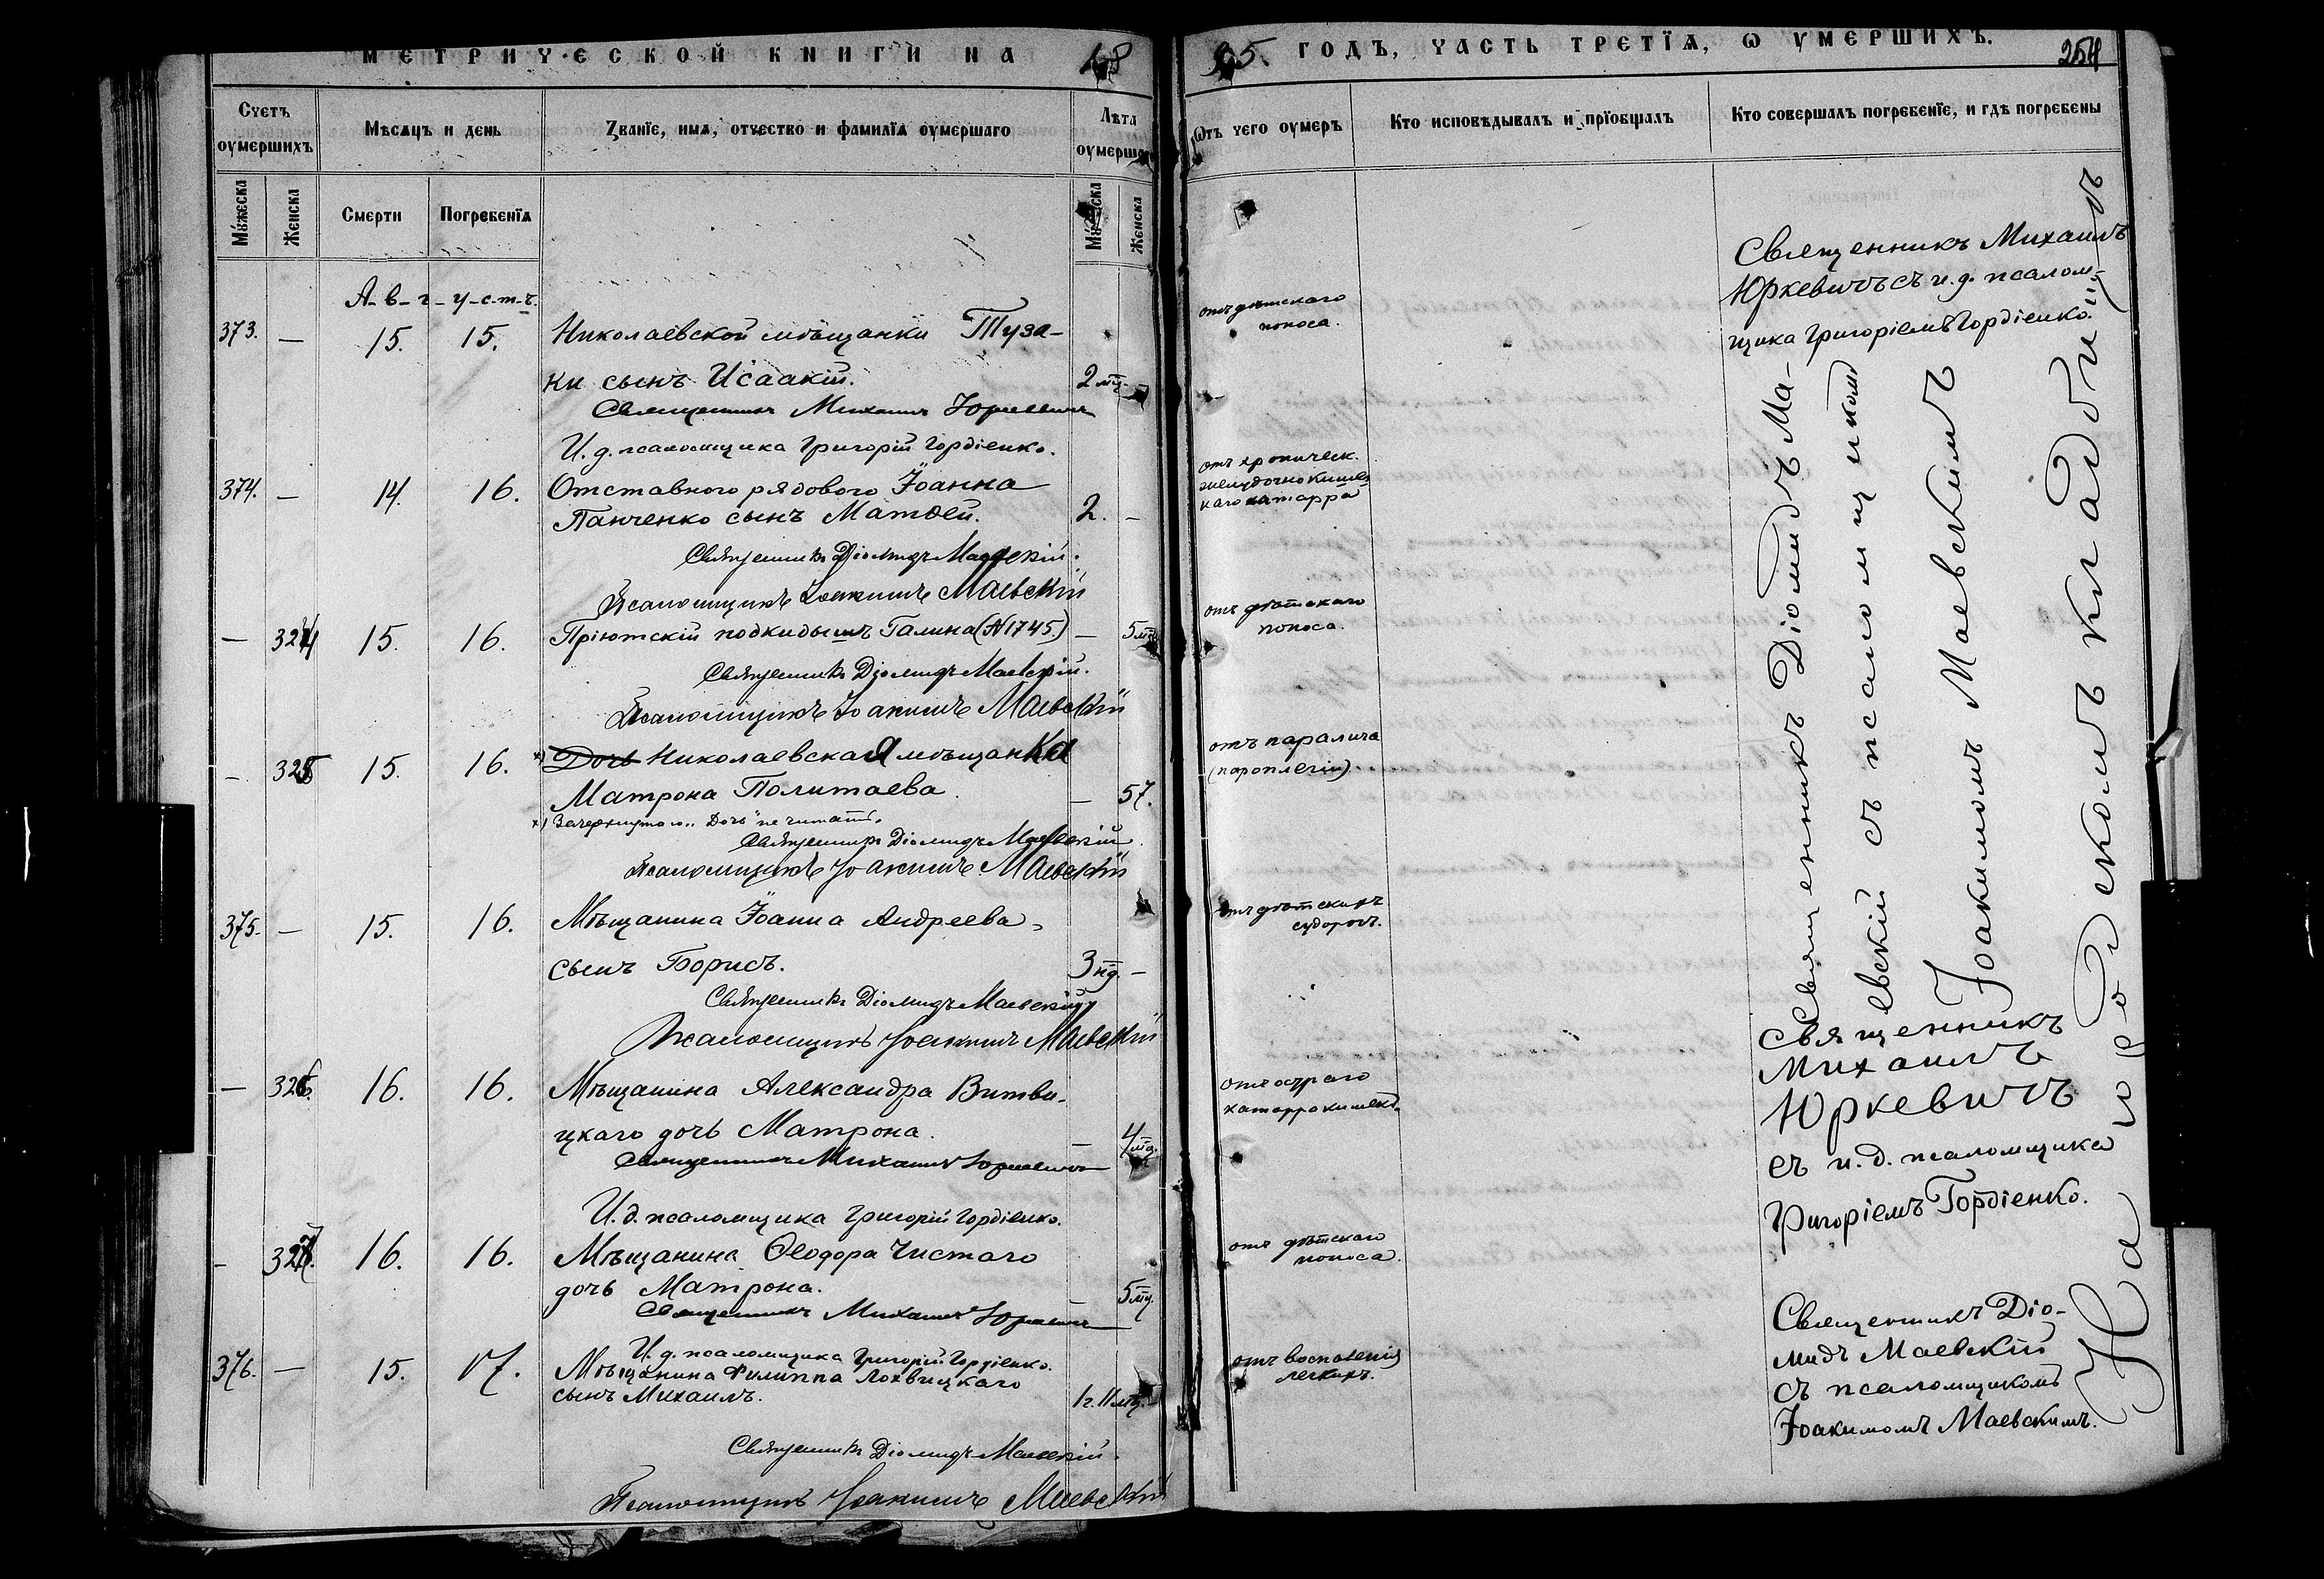 МЕТРИЧЕСКОЙ КНИГИ НА 18
95. ГОДЪ, ЧАСТЬ ТРЕТЇѦ, Ѡ УМЕРШИХЪ.
254
Счетъ оумершихъ
Мѣсѧцъ и день
Званїе, имѧ, отчество и фамилїѧ оумершаго
Лѣта оумерша
Ѿтъ чего оумеръ
Кто исповѣдывалъ и прїобщалъ
Кто совершалъ погребенїе, и гдѣ погребены
Мужеска
Женска
Смерти
Погребенїѧ
Мужеска
Женска
А-в-г-у-с-т-ъ.
373. — 15. 15. Николаевской мѣщанки Туза-
ки сынъ Исаакій. 2 мц. —
отъ дѣтскаго
поноса.
Священникъ Михаилъ Юркевичъ
И. д. псаломщика Григорій Гордіенко.
Священникъ Михаилъ
Юркевичъ съ и. д. псалом-
щика Григоріемъ Гордіенко.
374. — 14. 16. Отставного рядового Іоанна
Панченко сынъ Матѳей. 2. —
отъ хроническ.
желудочнокишеч
каго катарра
Священникъ Діомидъ Маевскій.
Псаломщикъ Іоакимъ Маевскій
— 324 15. 16. Пріютскій подкидышъ Галина (N 1745.) — 5 мц.
отъ дѣтскаго
поноса.
Священникъ Діомидъ Маевскій.
Псаломщикъ Іоакимъ Маевскій
— 325 15. 16. *) Дочь Николаевская мѣщанка
Матрона Политаева. — 57.
отъ паралича
(пароплегіи)
*) Зачеркнутое „Дочь" не читать.
Священникъ Діомидъ Маевскій
Псаломщикъ Іоакимъ Маевскій
375. — 15. 16. Мѣщанина Іоанна Андреева
сынъ Борисъ. 3 нд. —
отъ дѣтскихъ
судорогъ.
Священникъ Діомидъ Маевскій
Псаломщикъ Іоакимъ Маевскій
Священникъ Діомидъ Ма-
евскій съ псаломщикомъ
Іоакимомъ Маевскимъ
— 326. 16. 16. Мѣщанина Александра Витви-
цкаго дочь Матрона. — 4 мц.
отъ остраго
катарра кишекъ.
Священникъ Михаилъ Юркевичъ
И. д. псаломщика Григорій Гордіенко.
— 327. 16. 16. Мѣщанина Ѳеодора Чистаго
дочь Матрона. — 5 мц.
отъ дѣтскаго
поноса.
Священникъ Михаилъ Юркевичъ
И. д. псаломщика Григорій Гордіенко.
Священникъ
Михаилъ
Юркевичъ
съ и. д. псаломщика
Григоріемъ Гордіенко.
376. — 15. 17. Мѣщанина Филиппа Лохвицкаго
сынъ Михаилъ. 1 г. 11 мц. —
отъ воспаленія
легкихъ.
Священникъ Діомидъ Маевскій.
Псаломщикъ Іоакимъ Маевскій
Священникъ Діо-
мидъ Маевскій
съ псаломщикомъ
Іоакимомъ Маевскимъ.
На городскомъ кладбищѣ